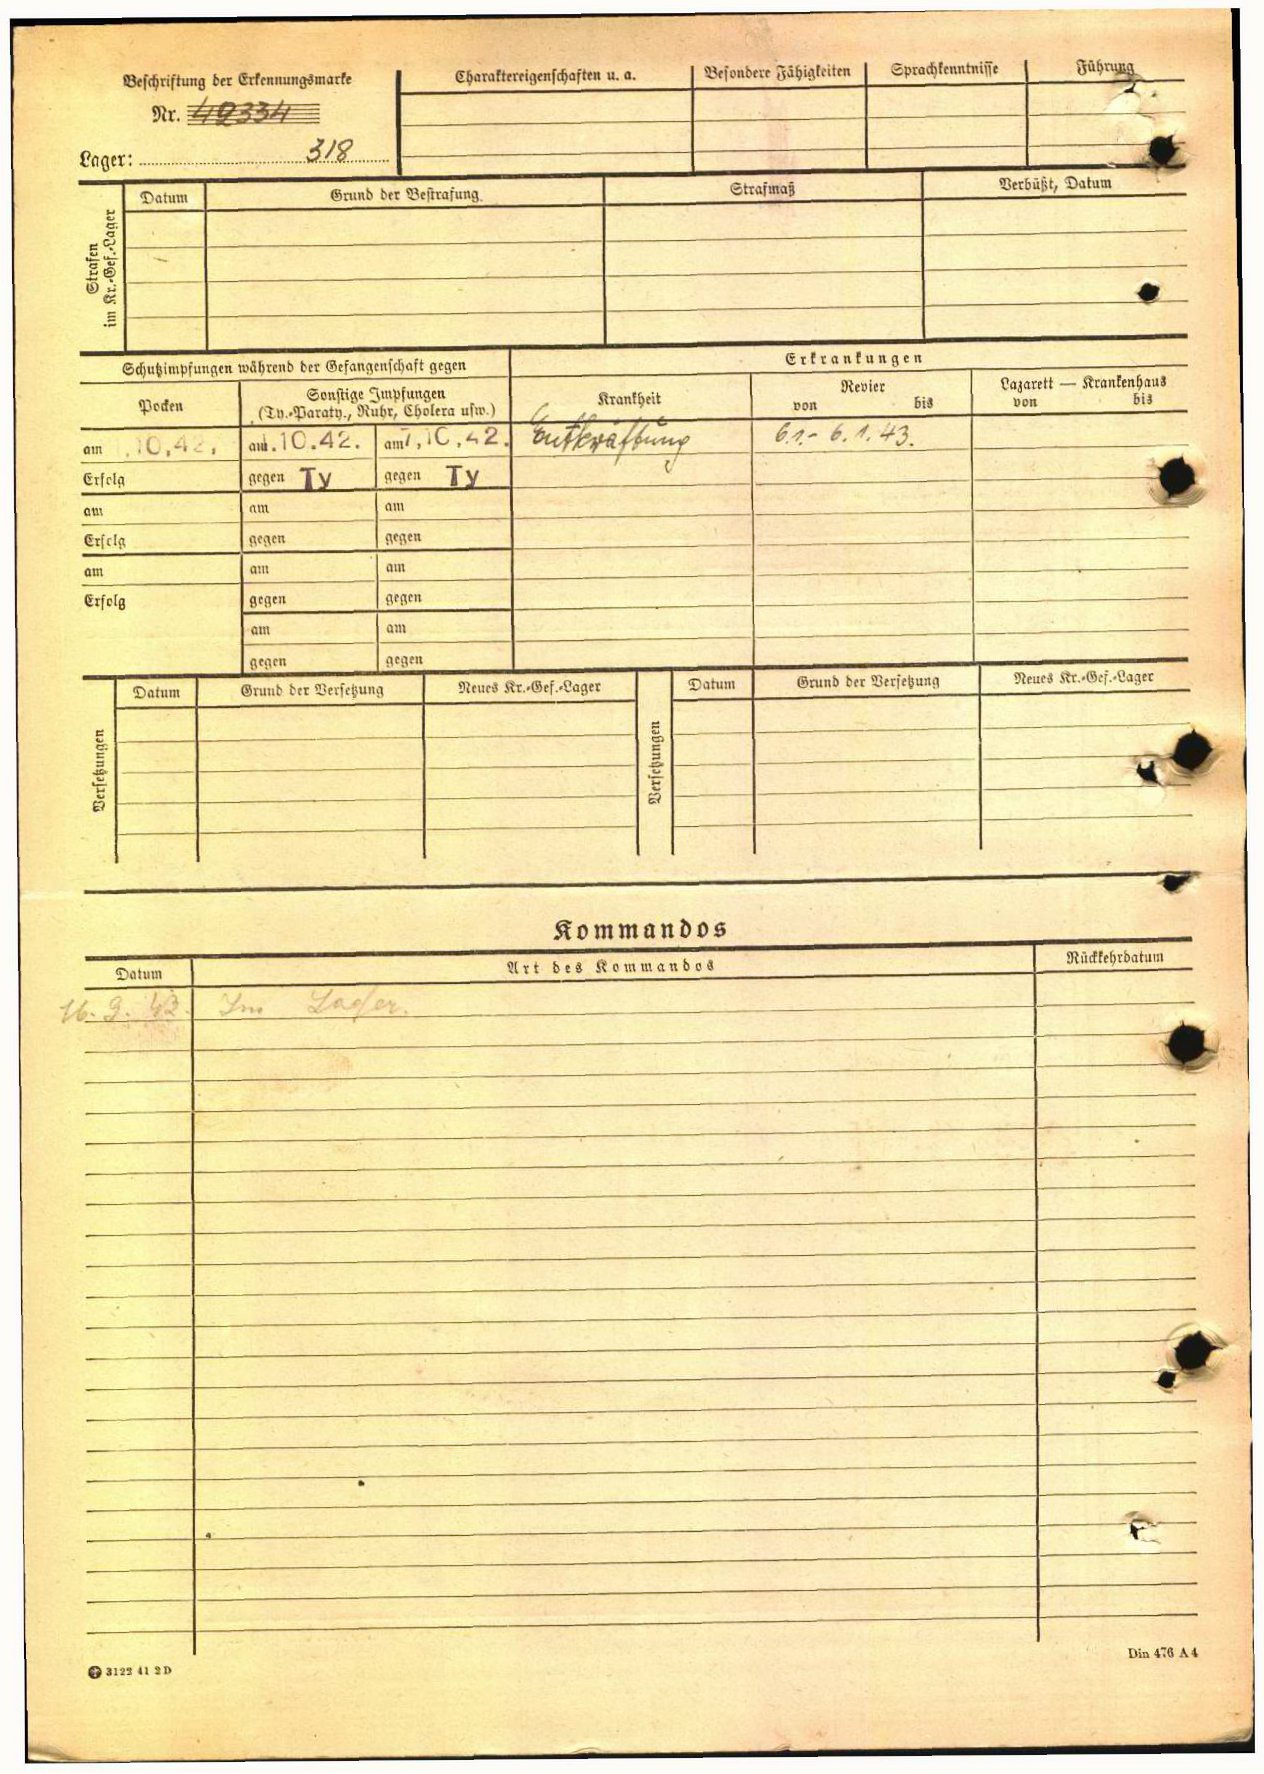 Beschriftung der Erkennungsmarke
Nr. 49334
Lager: 318
Charaktereigenschaften u. a.
Besondere Fähigkeiten
Sprachkenntnisse
Führung
Strafen
im Kr.-Gef.-Lager
Datum
Grund der Bestrafung
Strafmaß
Verbüßt, Datum
Schutzimpfungen während der Gefangenschaft gegen
Erkrankungen
Pocken
Sonstige Impfungen
(Ty.-Paraty., Ruhr, Cholera usw.)
Krankheit
Revier
von bis
Lazarett — Krankenhaus
von bis
am .10.42. am 1.10.42. am 7.10.42. Entkräftung 6.1.- 6.1.43.
Erfolg gegen Ty gegen Ty
am am am
Erfolg gegen gegen
am am am
Erfolg gegen gegen
am am
gegen gegen
Versetzungen
Datum Grund der Versetzung Neues Kr.-Gef.-Lager
Versetzungen
Datum Grund der Versetzung Neues Kr.-Gef.-Lager
Kommandos
Datum Art des Kommandos Rückkehrdatum
16. 9. 42. Im Lager.
3122 41 2 D
Din 476 A 4